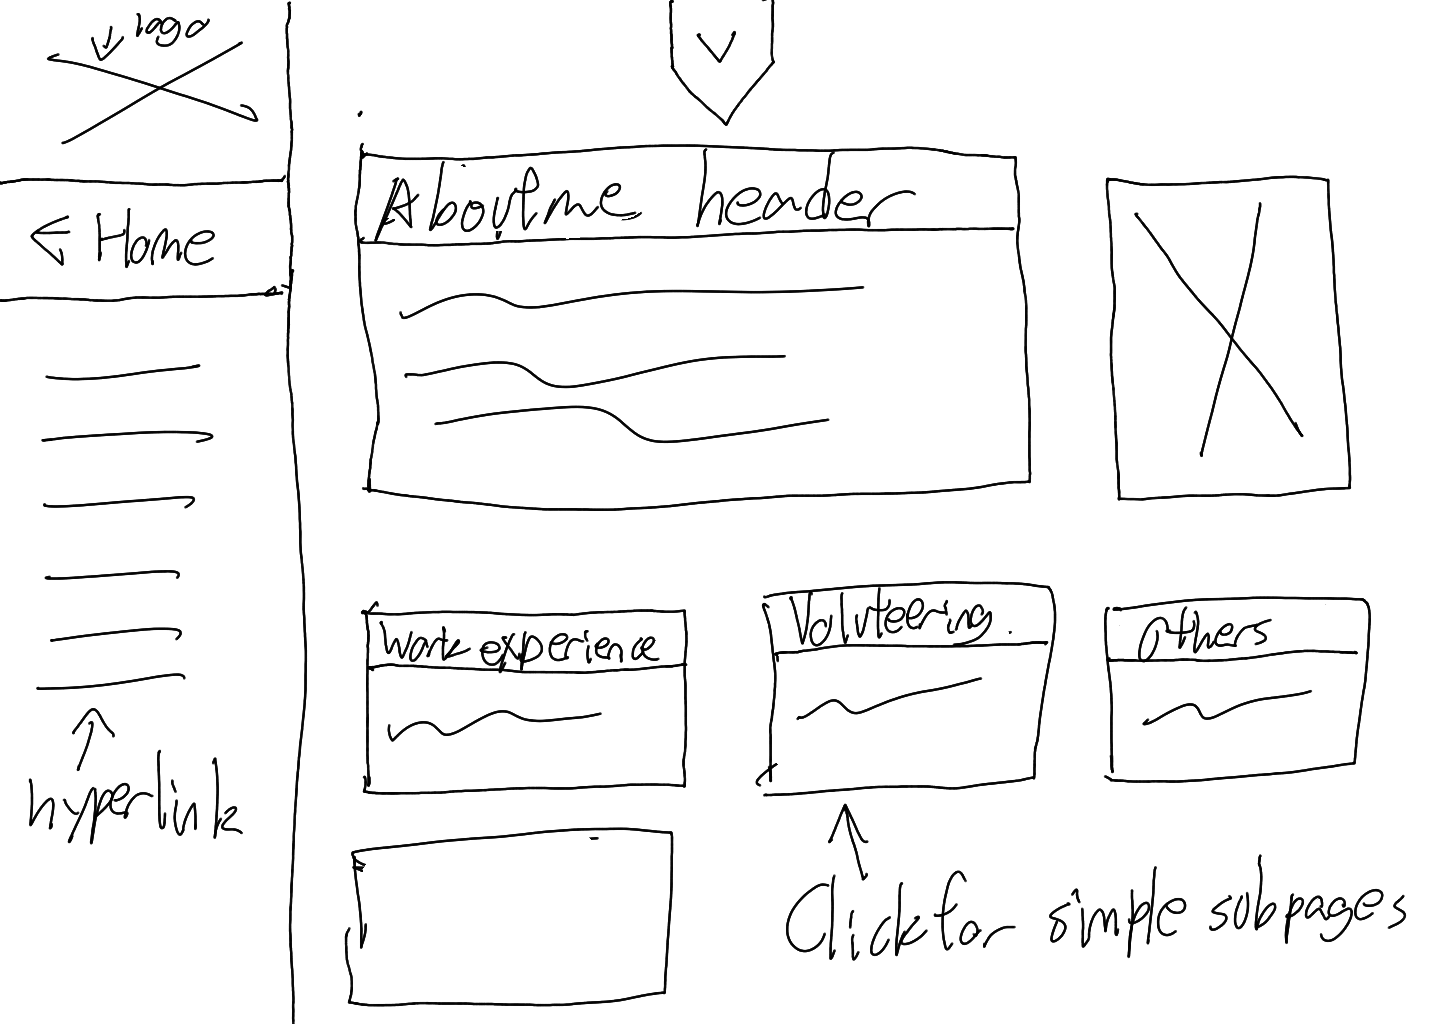 logo
Home
hyperlink
About me header
Work experience
Voluteering.
Others
Click for simple subpages